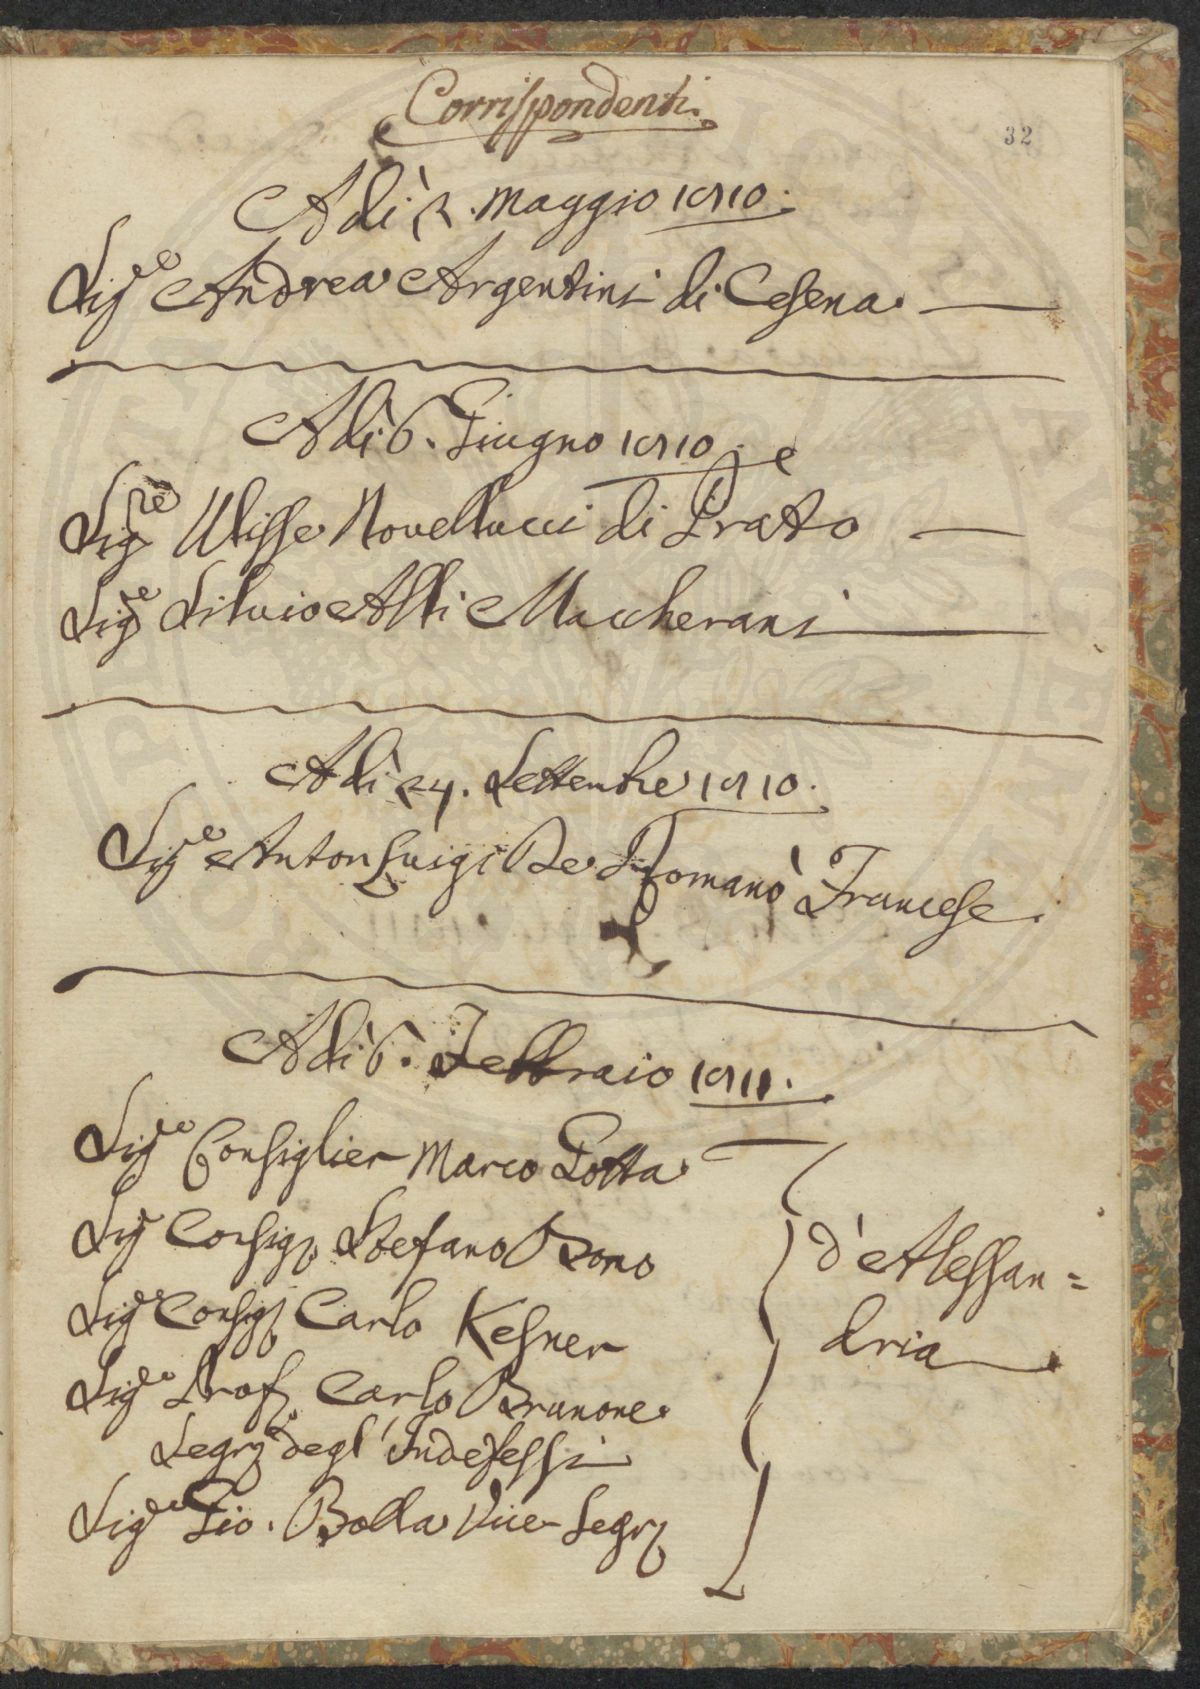 Corrispondenti.
32
Adì 2. Maggio 1810.
Sig.e Andrea Argentini di Cesena.
Adì 6. Giugno 1810.
Sig.re Ulisse Novellucci di Prato
Sig.e Silvio Alli Maccherani
Adì 24. Settembre 1810.
Sig.e Anton Luigi De Romanò Francese.
Adì 6. Febbraio 1811.
Sig.e Consiglier Marco Gotta
Sig.e Consig. Stefano Bono
Sig.e Consig. Carlo Kesner
d'Alessan=
dria
Sig.e Prof. Carlo Brunone.
Segr. degl'Indefessi
Sig.e Gio. Bolla Vice-Segr.